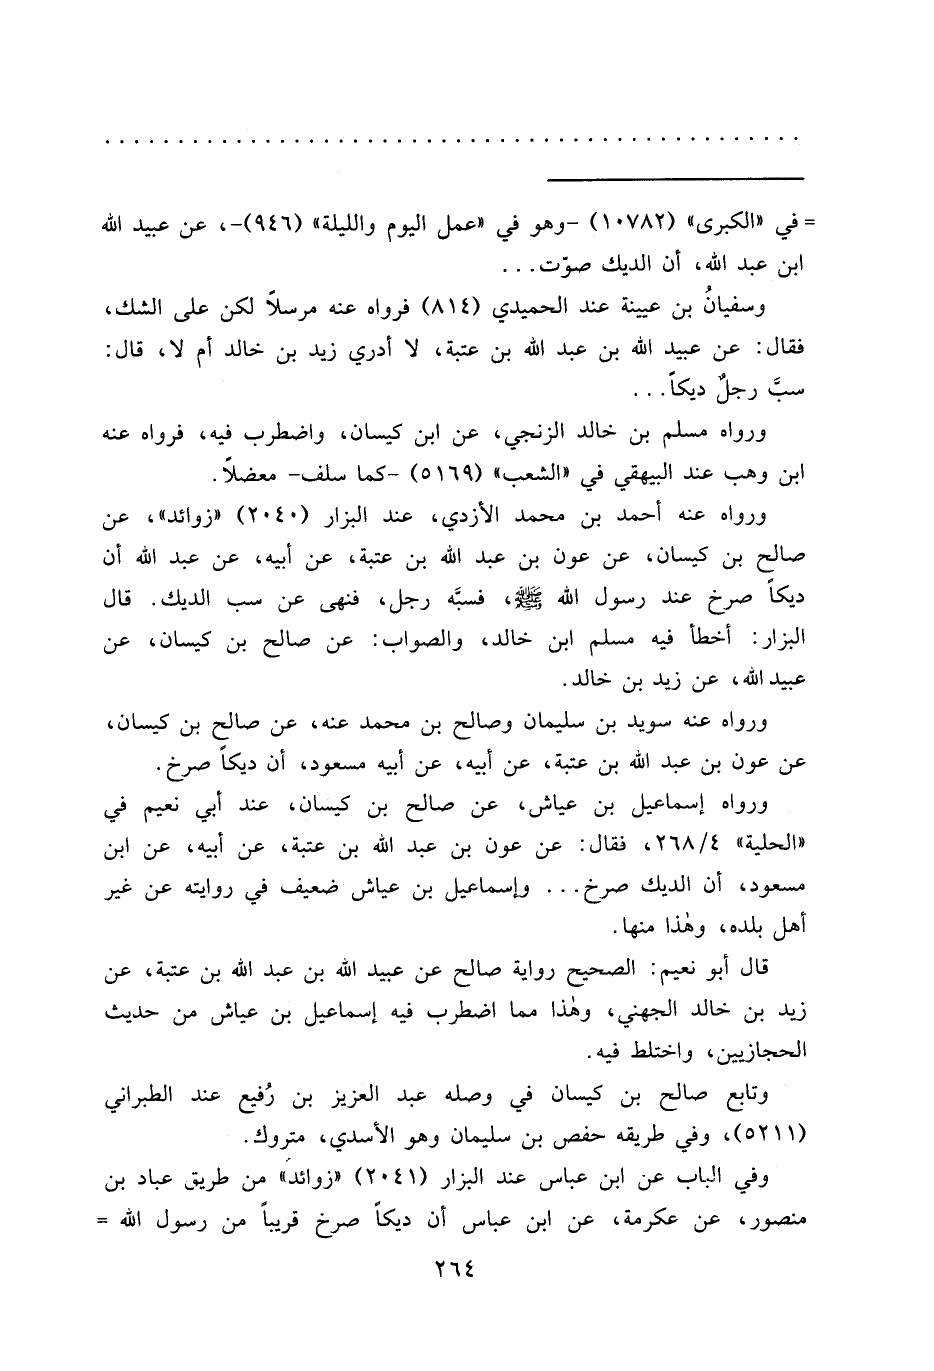 . . . . . . . . . . . . . . . . . . . . . . . . . . . . . . . . . . . . . . . . . . . . . . .
= في «الكبرى» (١٠٧٨٢) -وهو في «عمل اليوم والليلة» (٩٤٦)-، عن عبيد الله
ابن عبد الله، أن الديك صوّت...
وسفيانُ بن عيينة عند الحميدي (٨١٤) فرواه عنه مرسلاً لكن على الشك،
فقال: عن عبيد الله بن عبد الله بن عتبة، لا أدري زيد بن خالد أم لا، قال:
سبَّ رجلٌ ديكاً...
ورواه مسلم بن خالد الزنجي، عن ابن كيسان، واضطرب فيه، فرواه عنه
ابن وهب عند البيهقي في «الشعب» (٥١٦٩) -كما سلف- معضلاً.
ورواه عنه أحمد بن محمد الأزدي، عند البزار (٢٠٤٠) «زوائد»، عن
صالح بن كيسان، عن عون بن عبد الله بن عتبة، عن أبيه، عن عبد الله أن
ديكاً صرخ عند رسول الله ﷺ، فسبَّه رجل، فنهى عن سب الديك. قال
البزار: أخطأ فيه مسلم ابن خالد، والصواب: عن صالح بن كيسان، عن
عبيد الله، عن زيد بن خالد.
ورواه عنه سويد بن سليمان وصالح بن محمد عنه، عن صالح بن كيسان،
عن عون بن عبد الله بن عتبة، عن أبيه، عن أبيه مسعود، أن ديكاً صرخ.
ورواه إسماعيل بن عياش، عن صالح بن كيسان، عند أبي نعيم في
«الحلية» ٢٦٨/٤، فقال: عن عون بن عبد الله بن عتبة، عن أبيه، عن ابن
مسعود، أن الديك صرخ... وإسماعيل بن عياش ضعيف في روايته عن غير
أهل بلده، وهٰذا منها.
قال أبو نعيم: الصحيح رواية صالح عن عبيد الله بن عبد الله بن عتبة، عن
زيد بن خالد الجهني، وهٰذا مما اضطرب فيه إسماعيل بن عياش من حديث
الحجازيين، واختلط فيه.
وتابع صالح بن كيسان في وصله عبد العزيز بن رُفيع عند الطبراني
(٥٢١١)، وفي طريقه حفص بن سليمان وهو الأسدي، متروك.
وفي الباب عن ابن عباس عند البزار (٢٠٤١) «زوائد» من طريق عباد بن
منصور، عن عكرمة، عن ابن عباس أن ديكاً صرخ قريباً من رسول الله =
٢٦٤